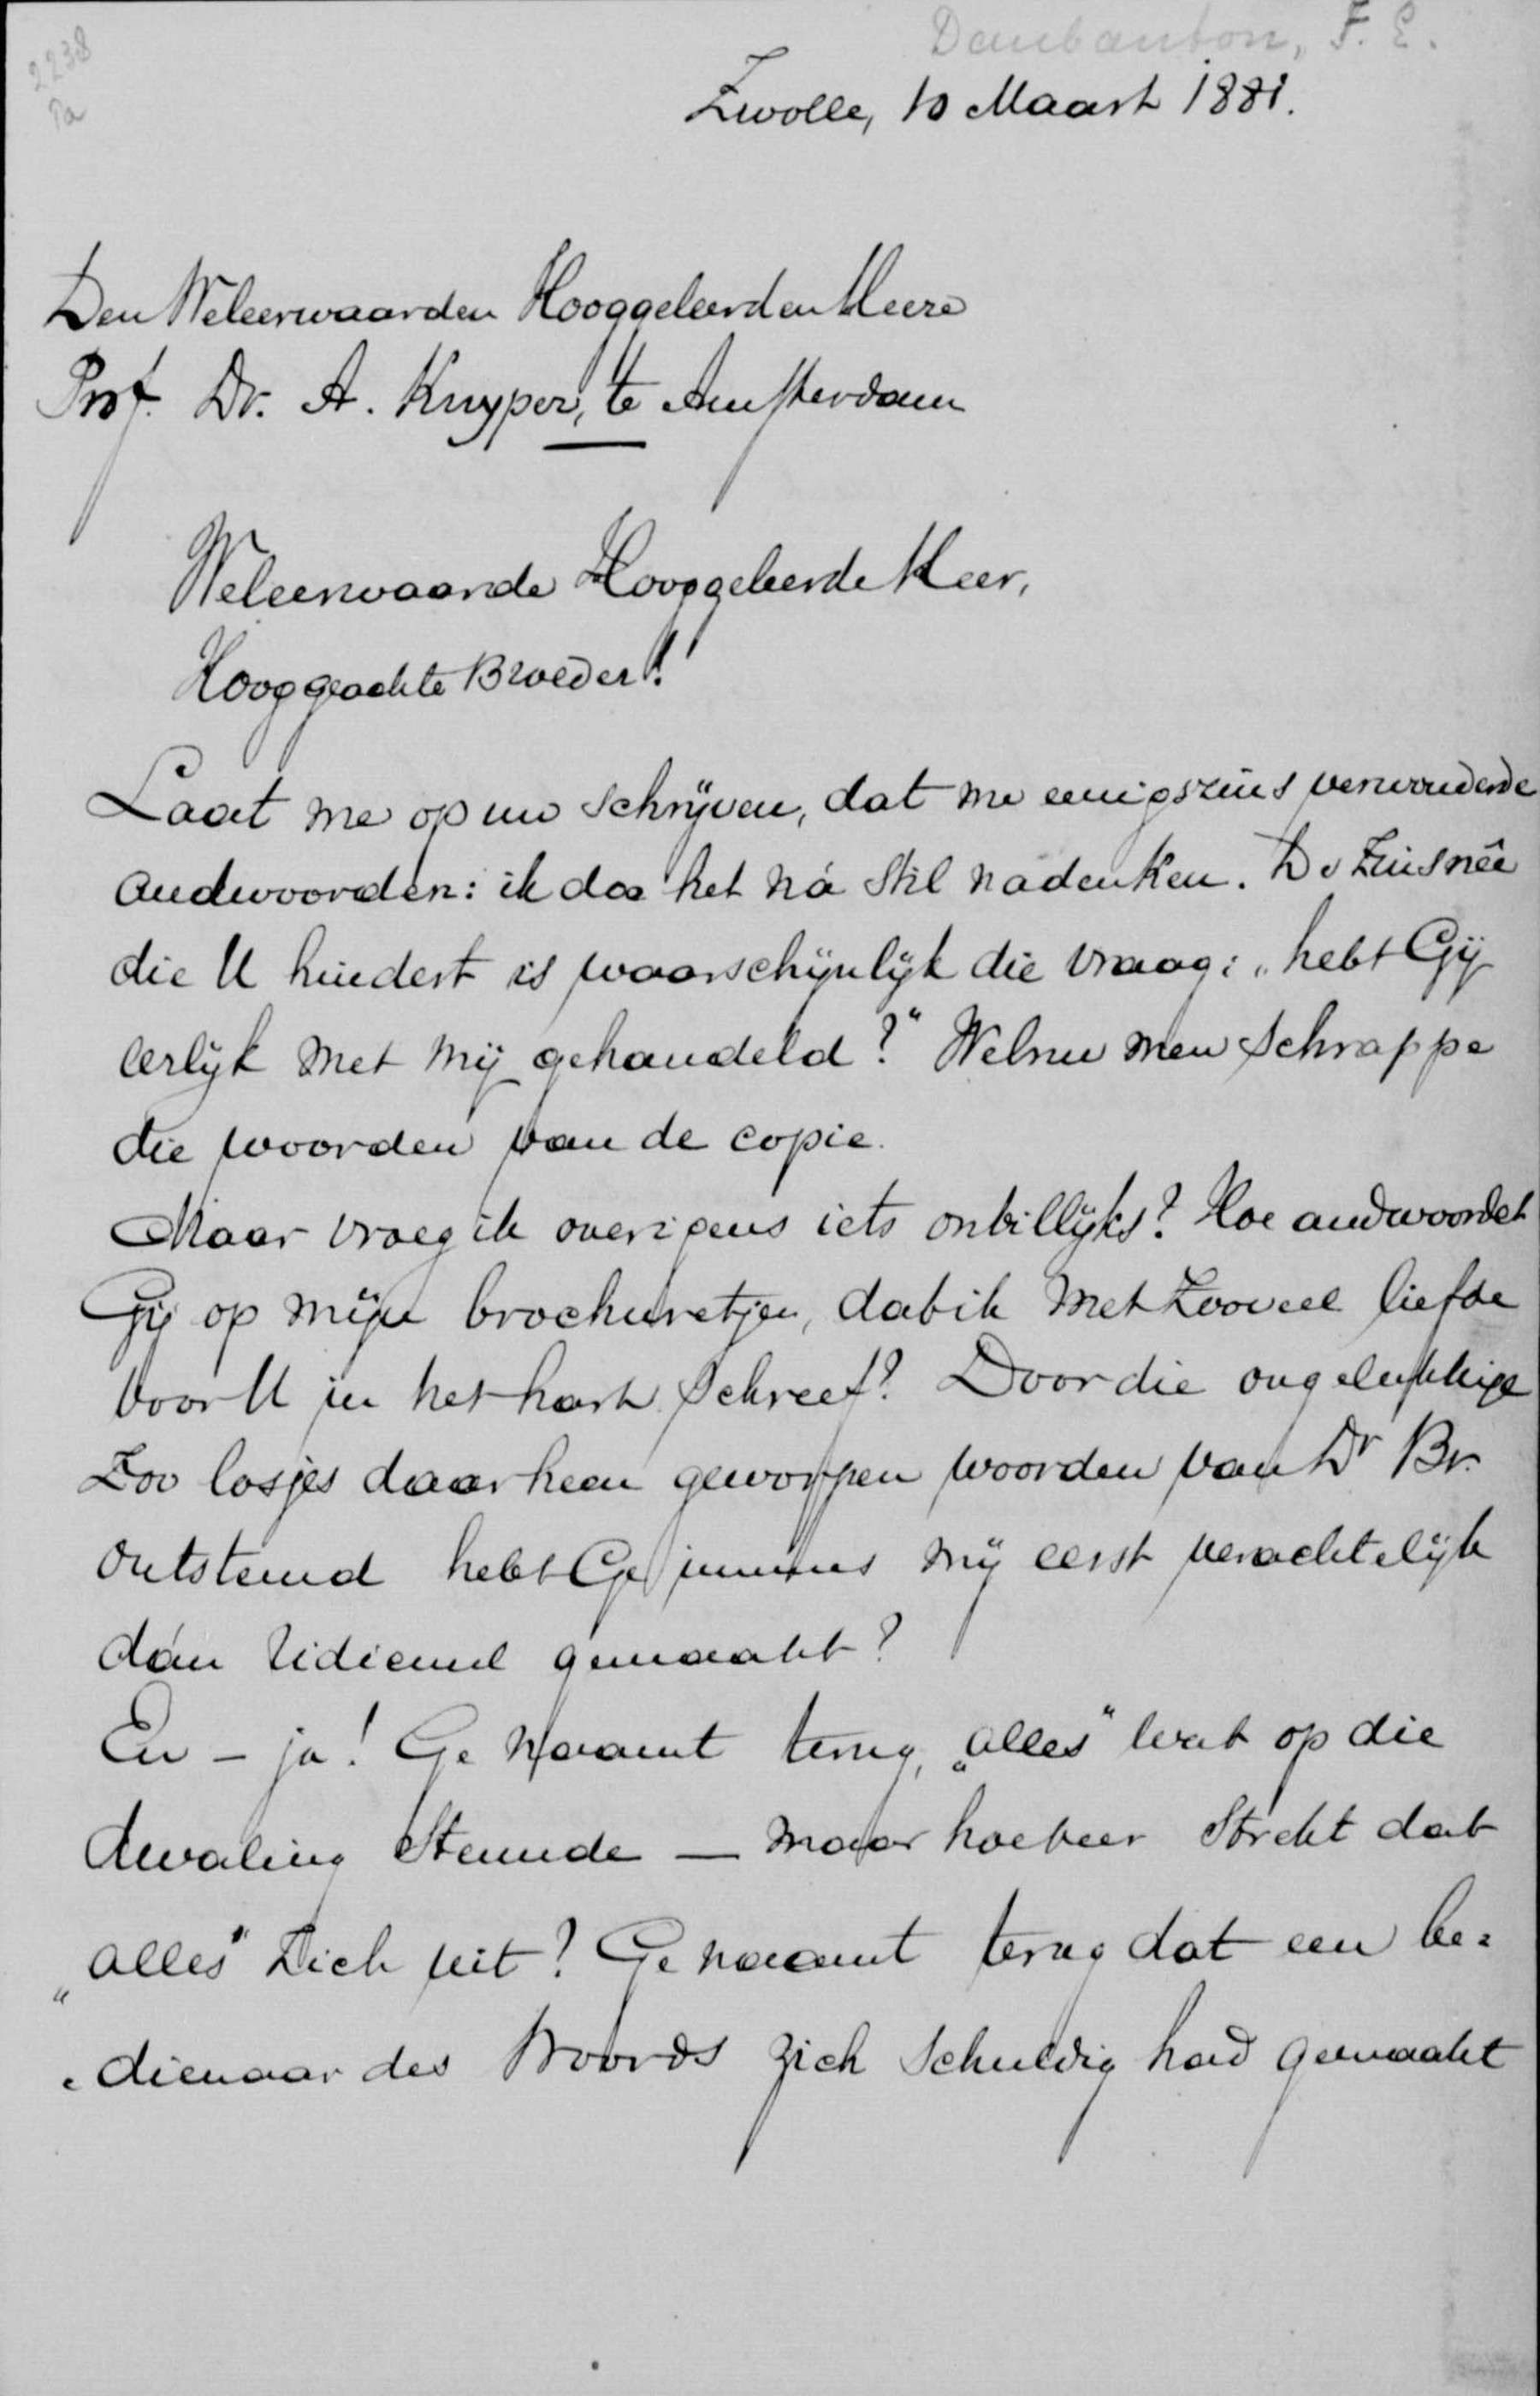 2238
Pa
Daubanton, F. E.
Zwolle, 10 Maart 1881.
Den Weleerwaarden Hooggeleerden Heere
Prof. Dr. A. Kuyper, te Amsterdam
Weleerwaarde Hooggeleerde Heer,
Hooggeachte Broeder!
Laat me op uw schrijven, dat me eenigszins verwonderde
andwoorden: ik doe het ná stil nadenken. De zinsneê
die U hindert is waarschijnlijk die vraag: „hebt Gij
eerlijk met mij gehandeld?" Welnu men schrappe
die woorden van de copie.
Maar vroeg ik overigens iets onbillijks? Hoe andwoordet
Gij op mijn brochuretjen, dat ik met zooveel liefde
voor U in het hart schreef? Door die ongelukkige
zoo losjes daarheen geworpen woorden van Dr Br.
ontstemd hebt Ge immers mij eerst verachtelijk
dán ridicuul gemaakt?
En – ja! Ge naamt terug, „alles" wat op die
dwaling steunde — maar hoeveer strekt dat
„alles" zich uit? Ge naamt terug dat een be=
dienaar des Woords zich schuldig had gemaakt